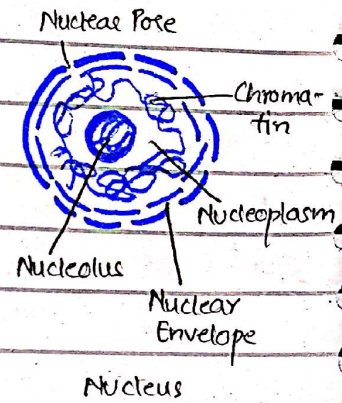 Nuclear Pore
Chroma-
tin
Nucleoplasm
Nucleolus
Nuclear
Envelope
Nucleus